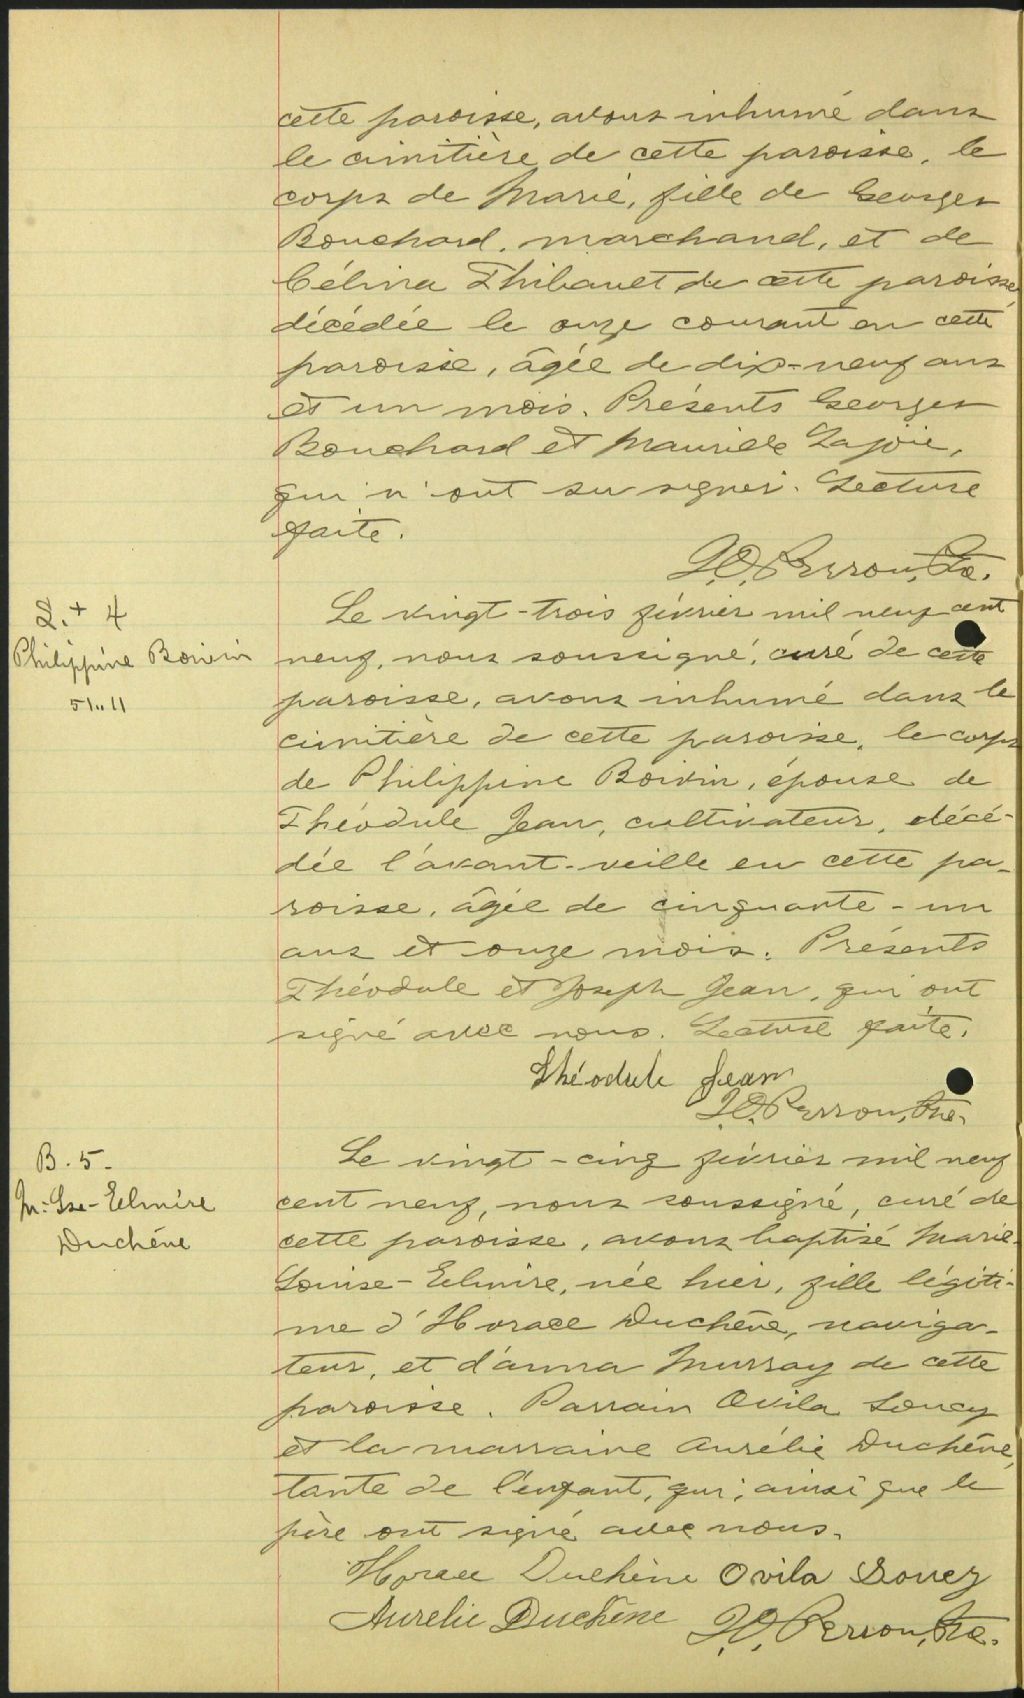 cette paroisse, avons inhumé dans
le cimitière de cette paroisse, le
corps de Marie, fille de Georges
Bouchard, marchand, et de
Célina Thibault de cette paroisse,
décédée le onze courant en cette
paroisse, âgée de dix-neuf ans
et un mois. Présents Georges
Bouchard et Maurille Lajoie,
qui n'ont su signer. Lecture
faite.
J.O. Perron, Ptre.
S. + 4
Philippine Boivin
51..11
Le vingt-trois février mil neuf cent
neuf, nous soussigné, curé de cette
paroisse, avons inhumé dans le
cimitière de cette paroisse, le corps
de Philippine Boivin, épouse de
Théodule Jean, cultivateur, décé-
dée l'avant-veille en cette pa-
roisse, âgée de cinquante-un
ans et onze mois. Présents
Théodule et Joseph Jean, qui ont
signé avec nous. Lecture faite.
Théodule Jean
J.O. Perron, Ptre.
B. 5.
M: Lse-Elmire
Duchêne
Le vingt-cinq février mil neuf
cent neuf, nous soussigné, curé de
cette paroisse, avons baptisé Marie-
Louise-Elmire, née hier, fille légiti-
me d'Horace Duchêne, naviga-
teur, et d'Anna Murray de cette
paroisse. Parrain Ovila Soucy
et la marraine Aurélie Duchêne,
tante de l'enfant, qui, ainsi que le
père ont signé avec nous.
Horace Duchêne Ovila Soucy
Aurelie Duchêne J.O. Perron, Ptre.